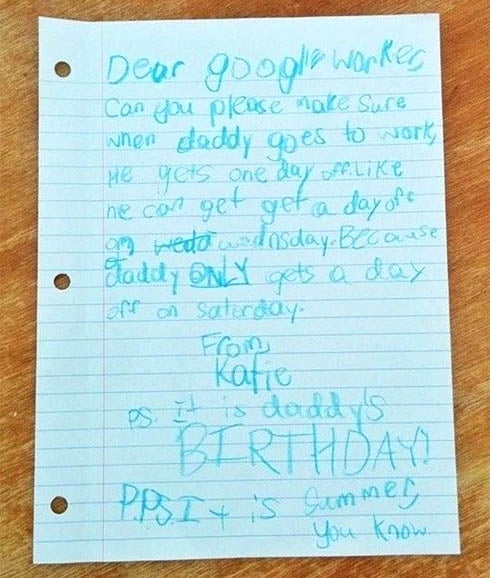 Dear google worker,
Can you please make sure
when daddy goes to work,
He gets one day off. Like
he can get get a day off
on weda wednsday. Because
daddy ONLY gets a day
off on saturday.
From,
Katie
ps. It is daddy's
BIRTHDAY!
P.P.S. It is Summer,
you know